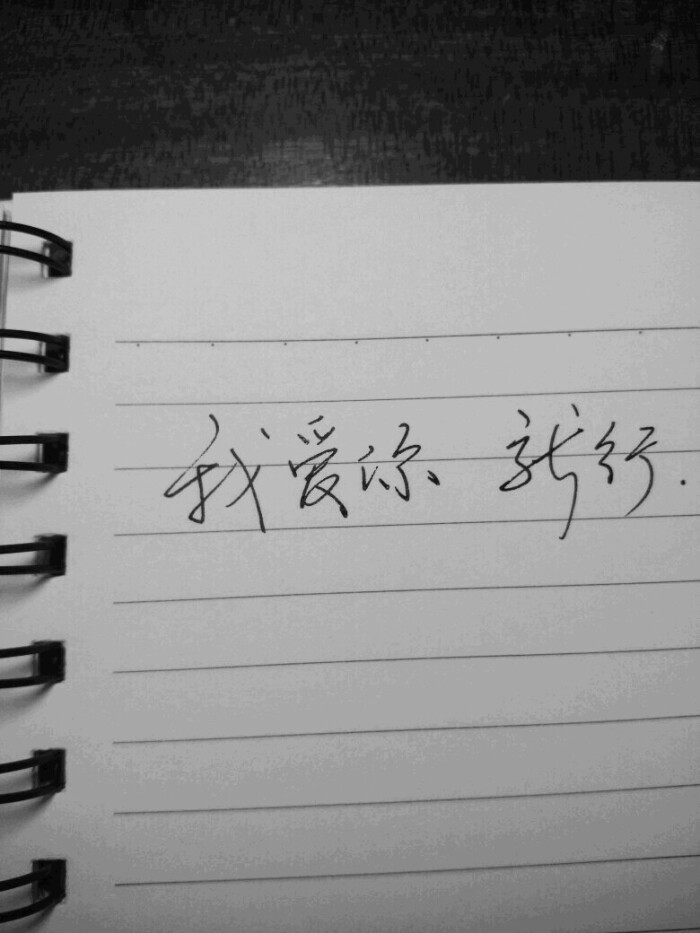 我爱你 就行.